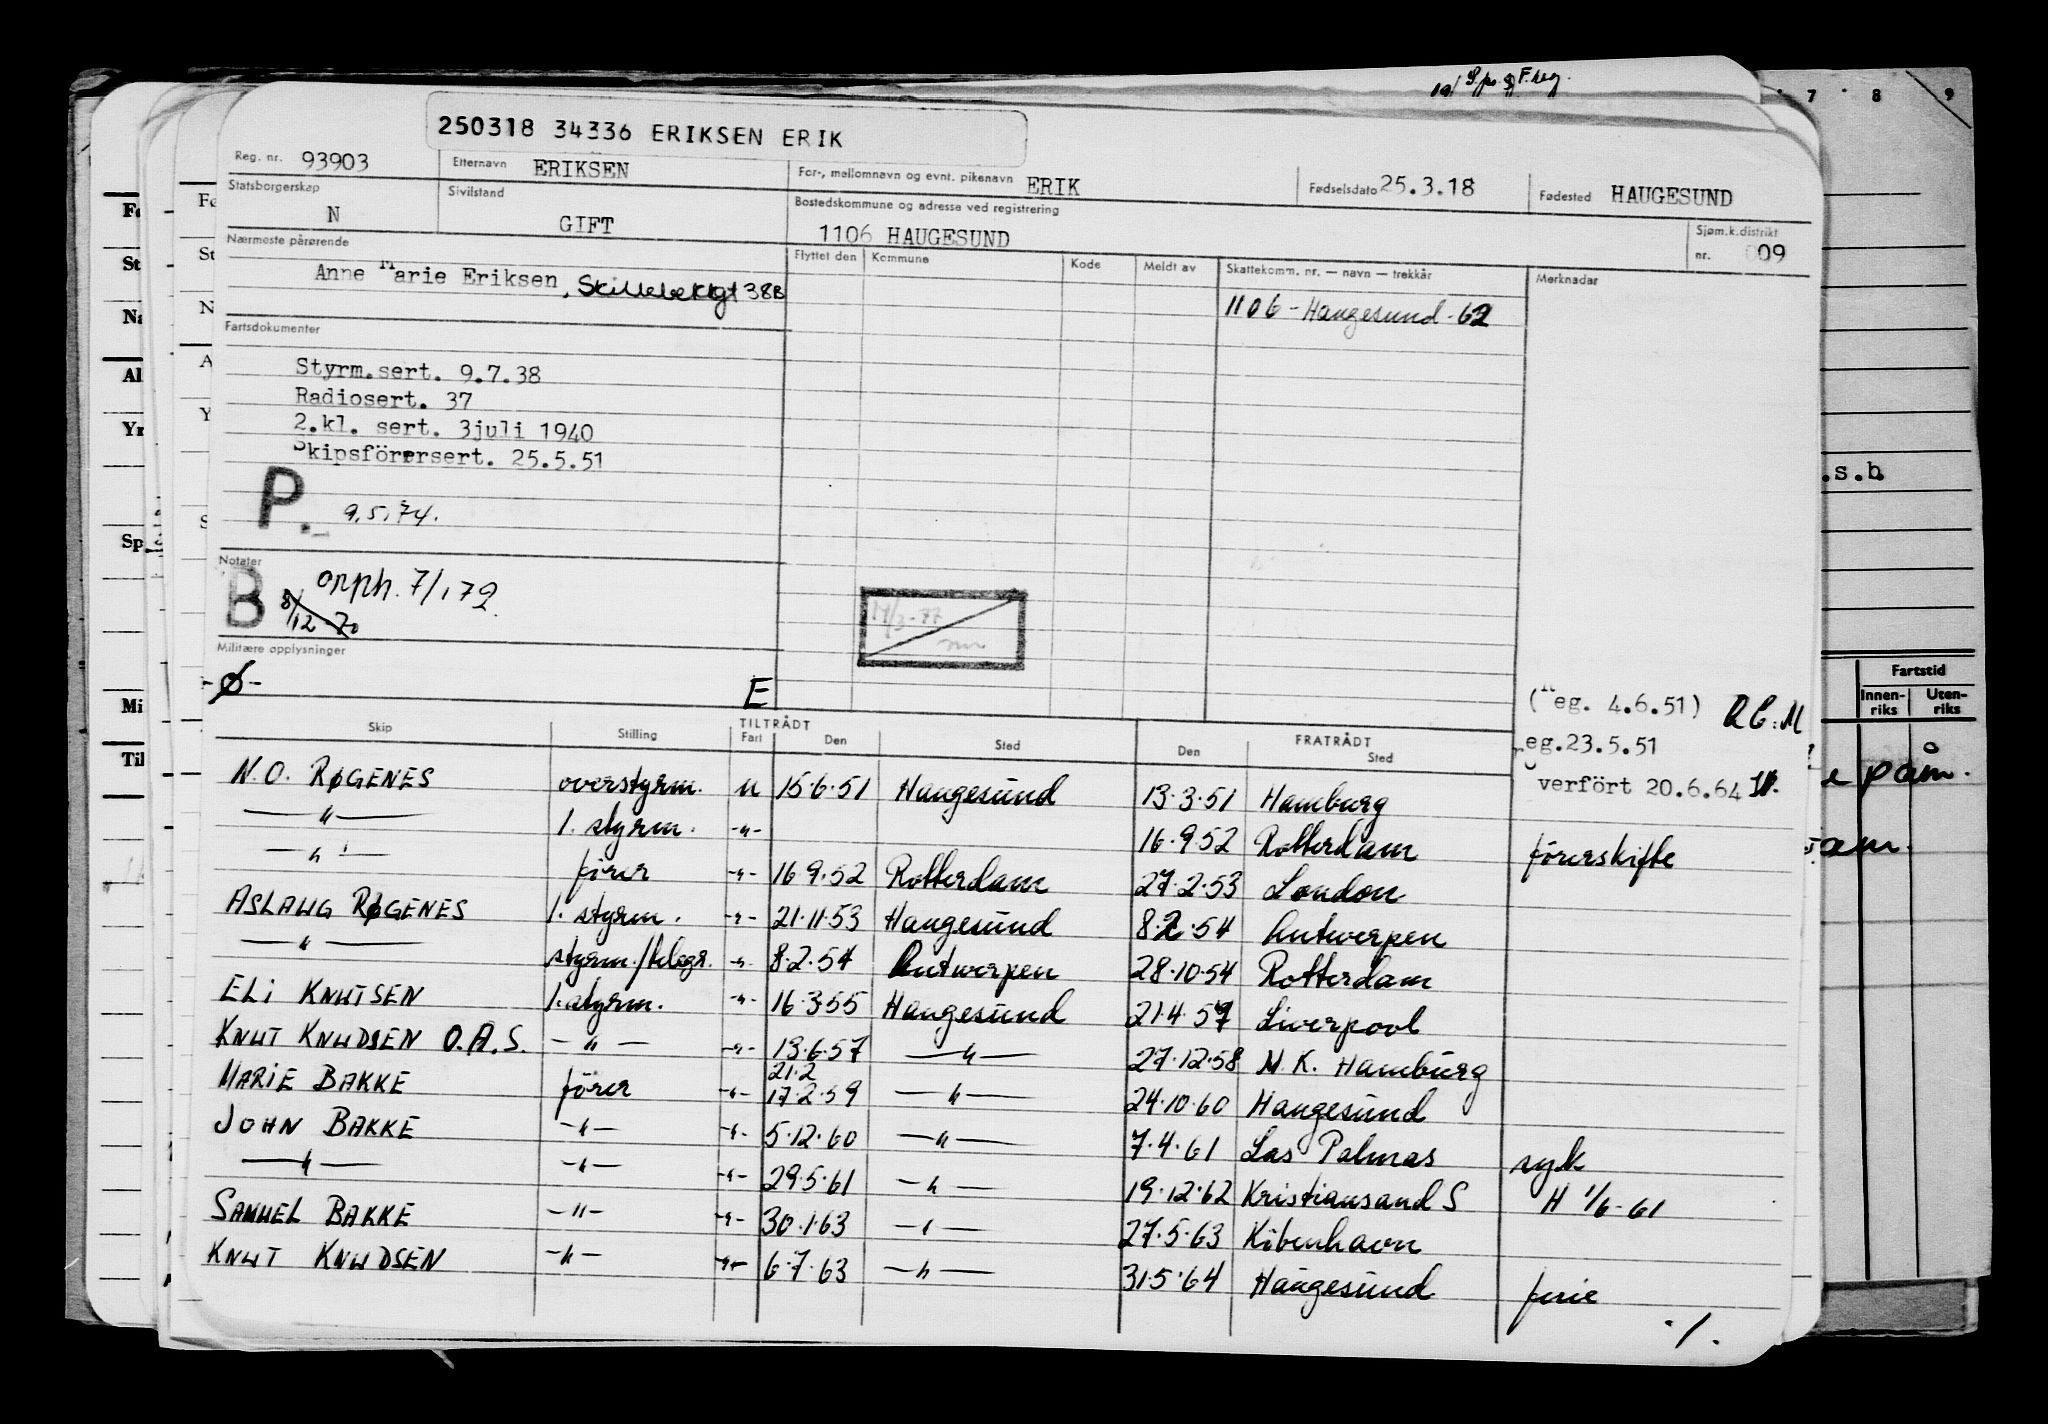 250318 34336 ERIKSEN ERIK
Reg. nr. 93903 Etternavn ERIKSEN For-, mellomnavn og evnt. pikenavn ERIK Fødselsdato 25.3.18 Fødested HAUGESUND
Statsborgerskap N Sivilstand GIFT Bostedskommune og adresse ved registrering 1106 HAUGESUND Sjøm.k.distrikt nr. 009
Nærmeste pårørende Flyttet den Kommune Kode Meldt av Skattekomm. nr. — navn — trekkår Merknader
Anne Marie Eriksen, Skillebekkgt 38B 1106 - Haugesund - 62
Fartsdokumenter
Styrm.sert. 9.7.38
Radiosert. 37
2.kl. sert. 3juli 1940
Skipsförersert. 25.5.51
P. 9.5.74.
Notater
B 8/12-70 7/1 72
Militære opplysninger
-Ø- E
(reg. 4.6.51)
reg.23.5.51
overfört 20.6.64
Skip Stilling TILTRÅDT Fart Den Sted FRATRÅDT Den Sted
N.O. RØGENES overstyrm. u 15.6.51 Haugesund 13.3.51 Hamburg
—"— 1. styrm. -"- 16.9.52 Rotterdam førerskifte
—"— förer -"- 16.9.52 Rotterdam 27.2.53 London
ASLAUG RØGENES 1. styrm. -"- 21.11.53 Haugesund 8.2.54 Antwerpen
—"— styrm./telegr. -"- 8.2.54 Antwerpen 28.10.54 Rotterdam
ELI KNUTSEN 1. styrm. -"- 16.3.55 Haugesund 21.4.57 Liverpool
KNUT KNUDSEN O.A.S. —"— -"- 13.6.57 —"— 27.12.58 M.K. Hamburg
MARIE BAKKE förer -"- 21.2 17.2.59 —"— 24.10.60 Haugesund
JOHN BAKKE -"- -"- 5.12.60 —"— 7.4.61 Las Palmas syk
—"— -"- -"- 29.5.61 —"— 19.12.62 Kristiansand S H 1/6-61
SAMUEL BAKKE -"- -"- 30.1.63 —"— 27.5.63 Köbenhavn
KNUT KNUDSEN -"- -"- 6.7.63 —"— 31.5.64 Haugesund ferie
./.
7 8 9
.s.b
Fartstid
Innenriks Utenriks